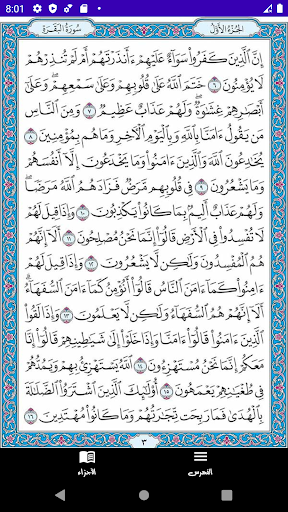 8:01
الجزء الأول
سورة البقرة
إِنَّ الَّذِينَ كَفَرُوا سَوَاءٌ عَلَيْهِمْ ءَأَنذَرْتَهُمْ أَمْ لَمْ تُنذِرْهُمْ
لَا يُؤْمِنُونَ ٦ خَتَمَ اللَّهُ عَلَىٰ قُلُوبِهِمْ وَعَلَىٰ سَمْعِهِمْ وَعَلَىٰ
أَبْصَارِهِمْ غِشَاوَةٌ وَلَهُمْ عَذَابٌ عَظِيمٌ ٧ وَمِنَ النَّاسِ
مَن يَقُولُ ءَامَنَّا بِاللَّهِ وَبِالْيَوْمِ الْآخِرِ وَمَا هُم بِمُؤْمِنِينَ ٨
يُخَادِعُونَ اللَّهَ وَالَّذِينَ ءَامَنُوا وَمَا يَخْدَعُونَ إِلَّا أَنفُسَهُمْ
وَمَا يَشْعُرُونَ ٩ فِي قُلُوبِهِم مَّرَضٌ فَزَادَهُمُ اللَّهُ مَرَضًا
وَلَهُمْ عَذَابٌ أَلِيمٌ بِمَا كَانُوا يَكْذِبُونَ ١٠ وَإِذَا قِيلَ لَهُمْ
لَا تُفْسِدُوا فِي الْأَرْضِ قَالُوا إِنَّمَا نَحْنُ مُصْلِحُونَ ١١ أَلَا إِنَّهُمْ
هُمُ الْمُفْسِدُونَ وَلَٰكِن لَّا يَشْعُرُونَ ١٢ وَإِذَا قِيلَ لَهُمْ
ءَامِنُوا كَمَا ءَامَنَ النَّاسُ قَالُوا أَنُؤْمِنُ كَمَا ءَامَنَ السُّفَهَاءُ
أَلَا إِنَّهُمْ هُمُ السُّفَهَاءُ وَلَٰكِن لَّا يَعْلَمُونَ ١٣ وَإِذَا لَقُوا
الَّذِينَ ءَامَنُوا قَالُوا ءَامَنَّا وَإِذَا خَلَوْا إِلَىٰ شَيَاطِينِهِمْ قَالُوا إِنَّا
مَعَكُمْ إِنَّمَا نَحْنُ مُسْتَهْزِءُونَ ١٤ اللَّهُ يَسْتَهْزِئُ بِهِمْ وَيَمُدُّهُمْ
فِي طُغْيَانِهِمْ يَعْمَهُونَ ١٥ أُولَٰئِكَ الَّذِينَ اشْتَرَوُا الضَّلَالَةَ
بِالْهُدَىٰ فَمَا رَبِحَت تِّجَارَتُهُمْ وَمَا كَانُوا مُهْتَدِينَ ١٦
٣
الفهرس
الأجزاء